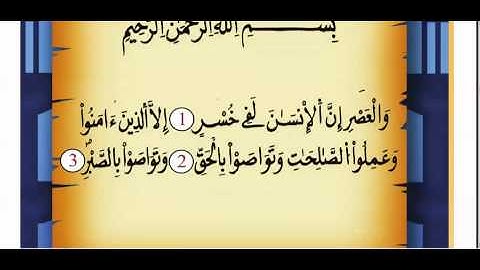 بِسْمِ اِ۬للَّهِ اِ۬لرَّحْمَٰنِ اِ۬لرَّحِيمِ
وَالْعَصْرِ إِنَّ اَ۬لْإِنسَٰنَ لَفِے خُسْرٍ 1 إِلَّا اَ۬لذِينَ ءَامَنُواْ
وَعَمِلُواْ اُ۬لصَّٰلِحَٰتِ وَتَوَاصَوْاْ بِالْحَقِّ 2 وَتَوَاصَوْاْ بِالصَّبْرِ 3